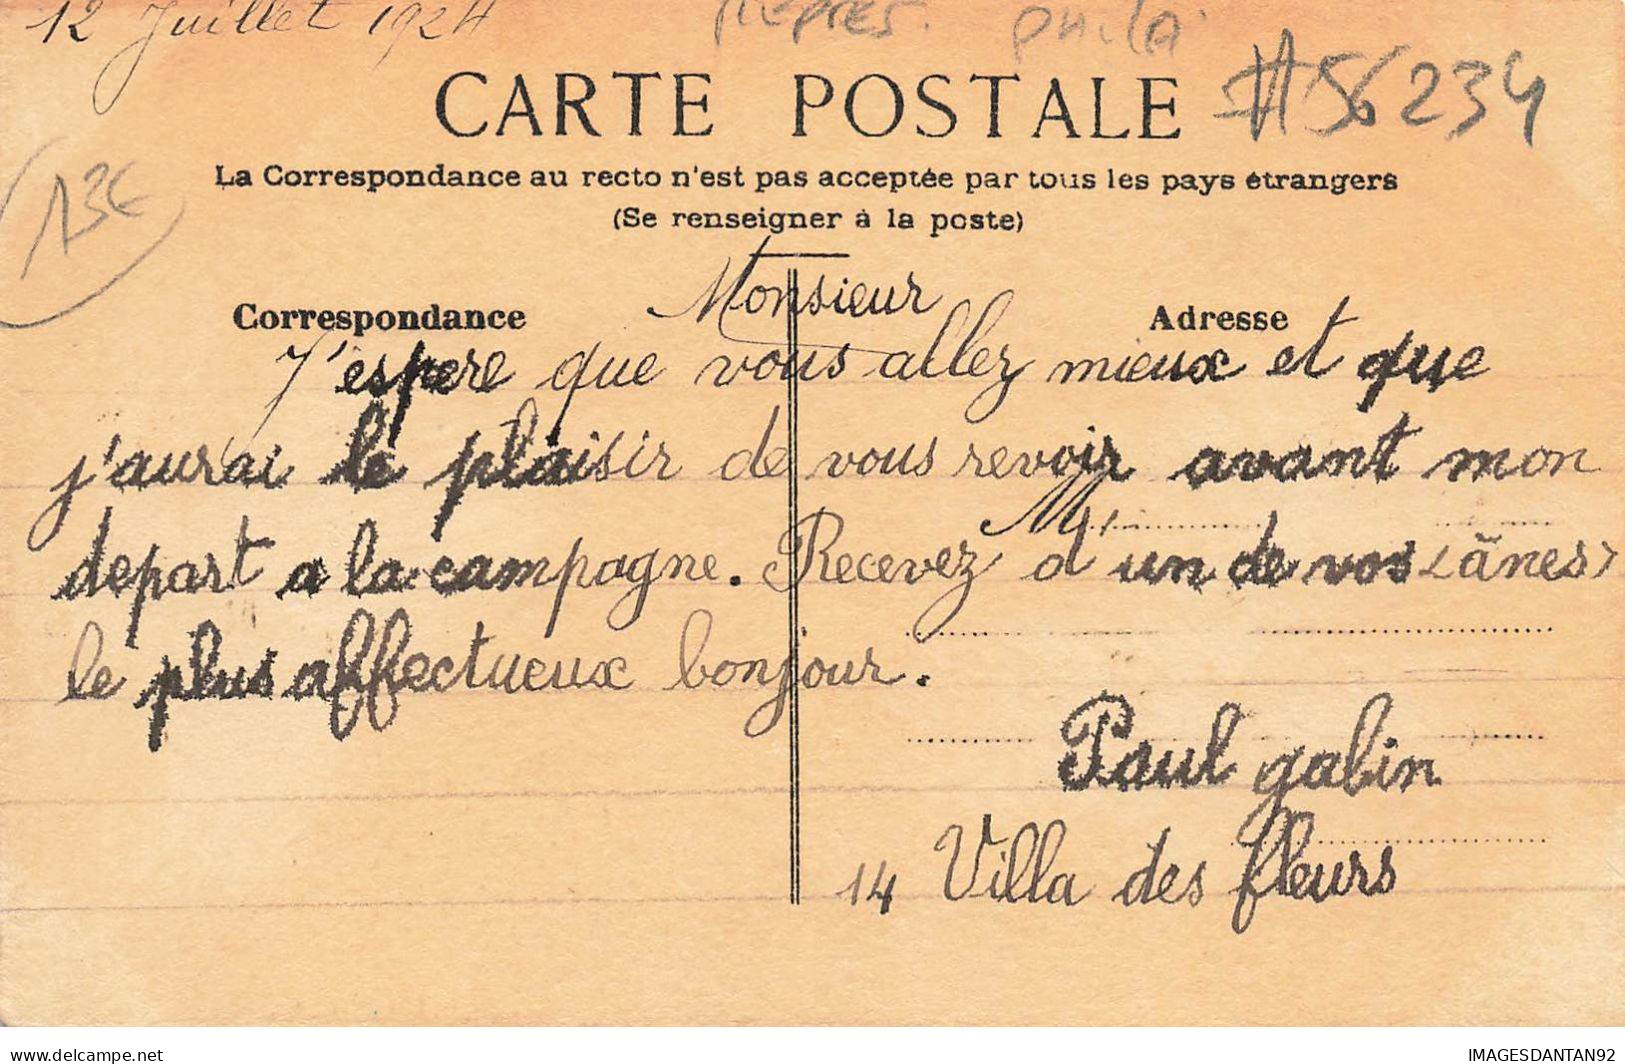 12 Juillet 1924
Repres. Phila
CARTE POSTALE
#56234
13€
La Correspondance au recto n'est pas acceptée par tous les pays étrangers
(Se renseigner à la poste)
Correspondance
Adresse
Monsieur
J'espere que vous allez mieux et que
j'aurai le plaisir de vous revoir avant mon
M
depart a la campagne. Recevez d'un de vos <ânes>
le plus affectueux bonjour.
Paul gabin
14 Villa des fleurs
delcampe.net
IMAGESDANTAN92